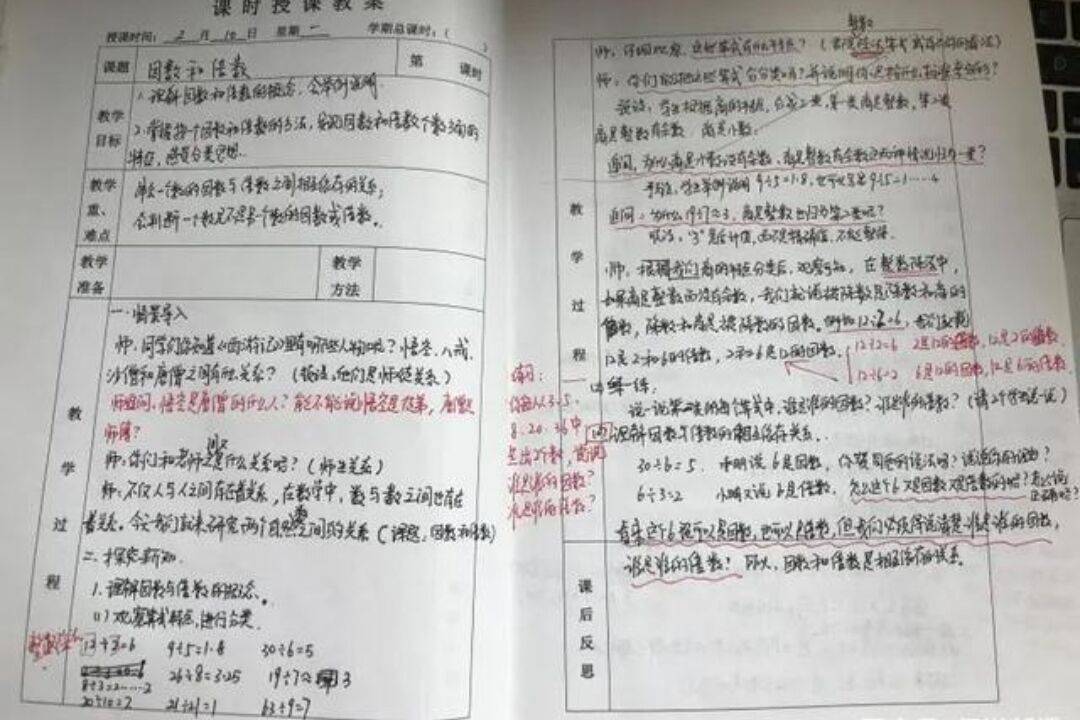 课时授课教案
授课时间: 2 月 10 日 星期 一 学期总课时:( )
课题 因数和倍数 第 课时
教学目标
1.理解因数和倍数的概念,会举例说明.
2.掌握找一个因数和倍数的方法,发现因数和倍数个数方面的
特征,感受分类思想.
教学重、难点
一个数的因数与倍数之间相互依存的关系;
会判断一个数是不是另一个数的因数或倍数。
教学准备 教学方法
教学过程
一.情景导入
师:同学们你知道《西游记》里有哪些人物吗?悟空、八戒、
沙僧和唐僧之间有什么关系?(预设:他们是师徒关系)
师追问:悟空是唐僧的什么人?能不能说悟空是徒弟,唐僧是
师傅?
师:你们和老师之间是什么关系呢?(师生关系)
师:不仅人与人之间存在着关系,在数学中,数与数之间也存在
着关系。今天我们就来研究两个自然数之间的关系(课题:因数和倍数)
二.探究新知
1.理解因数与倍数的概念。
(1)观察算式特点,进行分类.
12÷2=6 9÷5=1.8 30÷6=5
8÷3=2……2 26÷8=3.25 19÷7≈3
20÷10=2 21÷21=1 63÷9=7
练习:
8、20、36中
选出2个数,说说
谁是谁的因数?
谁是谁的倍数?
教学过程
师:仔细观察,这些算式有什么特点?
师:你们能把这些算式分分类吗?并说明你是按什么标准来分的?
预设:学生根据商的特点,分成2类,第一类商是整数,第二类
商是整数有余数、商是小数。
追问:为什么商是小数没有余数、商是整数有余数这两种情况归为一类?
9÷5=1.8,也可以写成9÷5=1……4
追问:为什么19÷7≈3,商是整数也归为第二类呢?
预设:"3"是估计值,而不是精确值,不能整除.
师:根据我们商的特点分类后,观察可知,在整数除法中,
如果商是整数而没有余数,我们就说被除数是除数和商的
倍数,除数和商是被除数的因数。例如12÷2=6,我们就说
12是2和6的倍数,2和6是12的因数.
12÷2=6 2是12的因数,12是2的倍数.
12÷6=2 6是12的因数,12是6的倍数.
练一练:
说一说第一类的每个算式中,谁是谁的因数?谁是谁的倍数?(请2个学生说一说)
理解因数与倍数的相互依存关系.
30÷6=5. 小明说6是因数,你赞同他的说法吗?说说你的理由?
6÷3=2 小明又说6是倍数,怎么这个6又是因数又是倍数的呢?
看来这个6既可以是因数,也可以是倍数,但我们必须得说清楚谁是谁的因数,
谁是谁的倍数?所以,因数和倍数是相互依存的关系.
课后反思